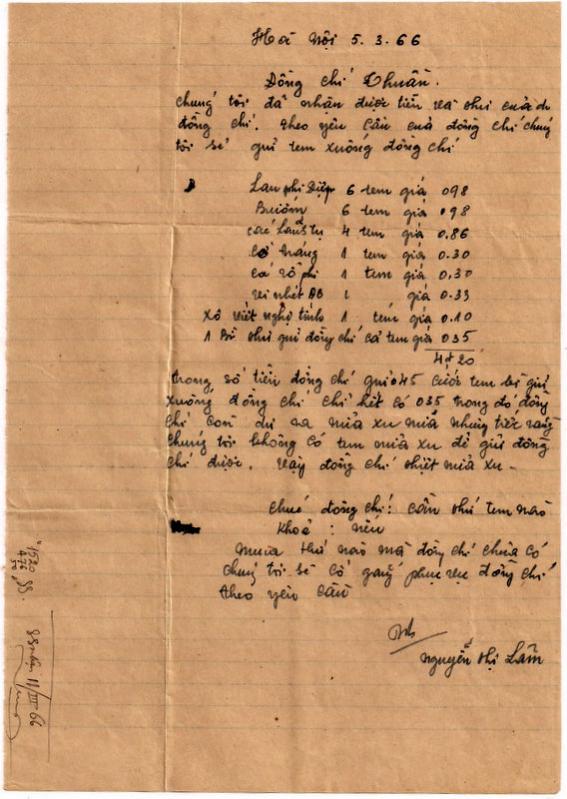 Hà Nội 5.3.66
Đồng chí Thuần.
chúng tôi đã nhận được tiền và thư của đ
đồng chí. theo yêu cầu của đồng chí chúng
tôi sẽ gửi tem xuống đồng chí
Lan phi Điệp 6 tem giá 098
Bươm 6 tem giá 098
các 4 tem giá 0.86
cá 1 tem giá 0.30
cá rô phi 1 tem giá 0,30
1 giá 0.33
Xô viết nghệ tĩnh 1 tem giá 0.10
1 Bì thư gửi đồng chí cả tem giá 035
4đ20
trong số tiền đồng chí gửi 045 cước tem để gửi
xuống đồng chí chỉ hết có 035 trong đó đồng
chí còn dư ra nửa xu nhưng tiếc rằng
chúng tôi không có tem nửa xu để gửi đồng
chí được. vậy đồng chí thiệt nửa xu -
chúc đồng chí: cần thứ tem nào
khoẻ: nếu
mua thứ nào mà đồng chí chưa có
chúng tôi sẽ cố gắng phục vụ đồng chí
theo yêu cầu
nguyễn thị Lâm
1920
476
11/III 66